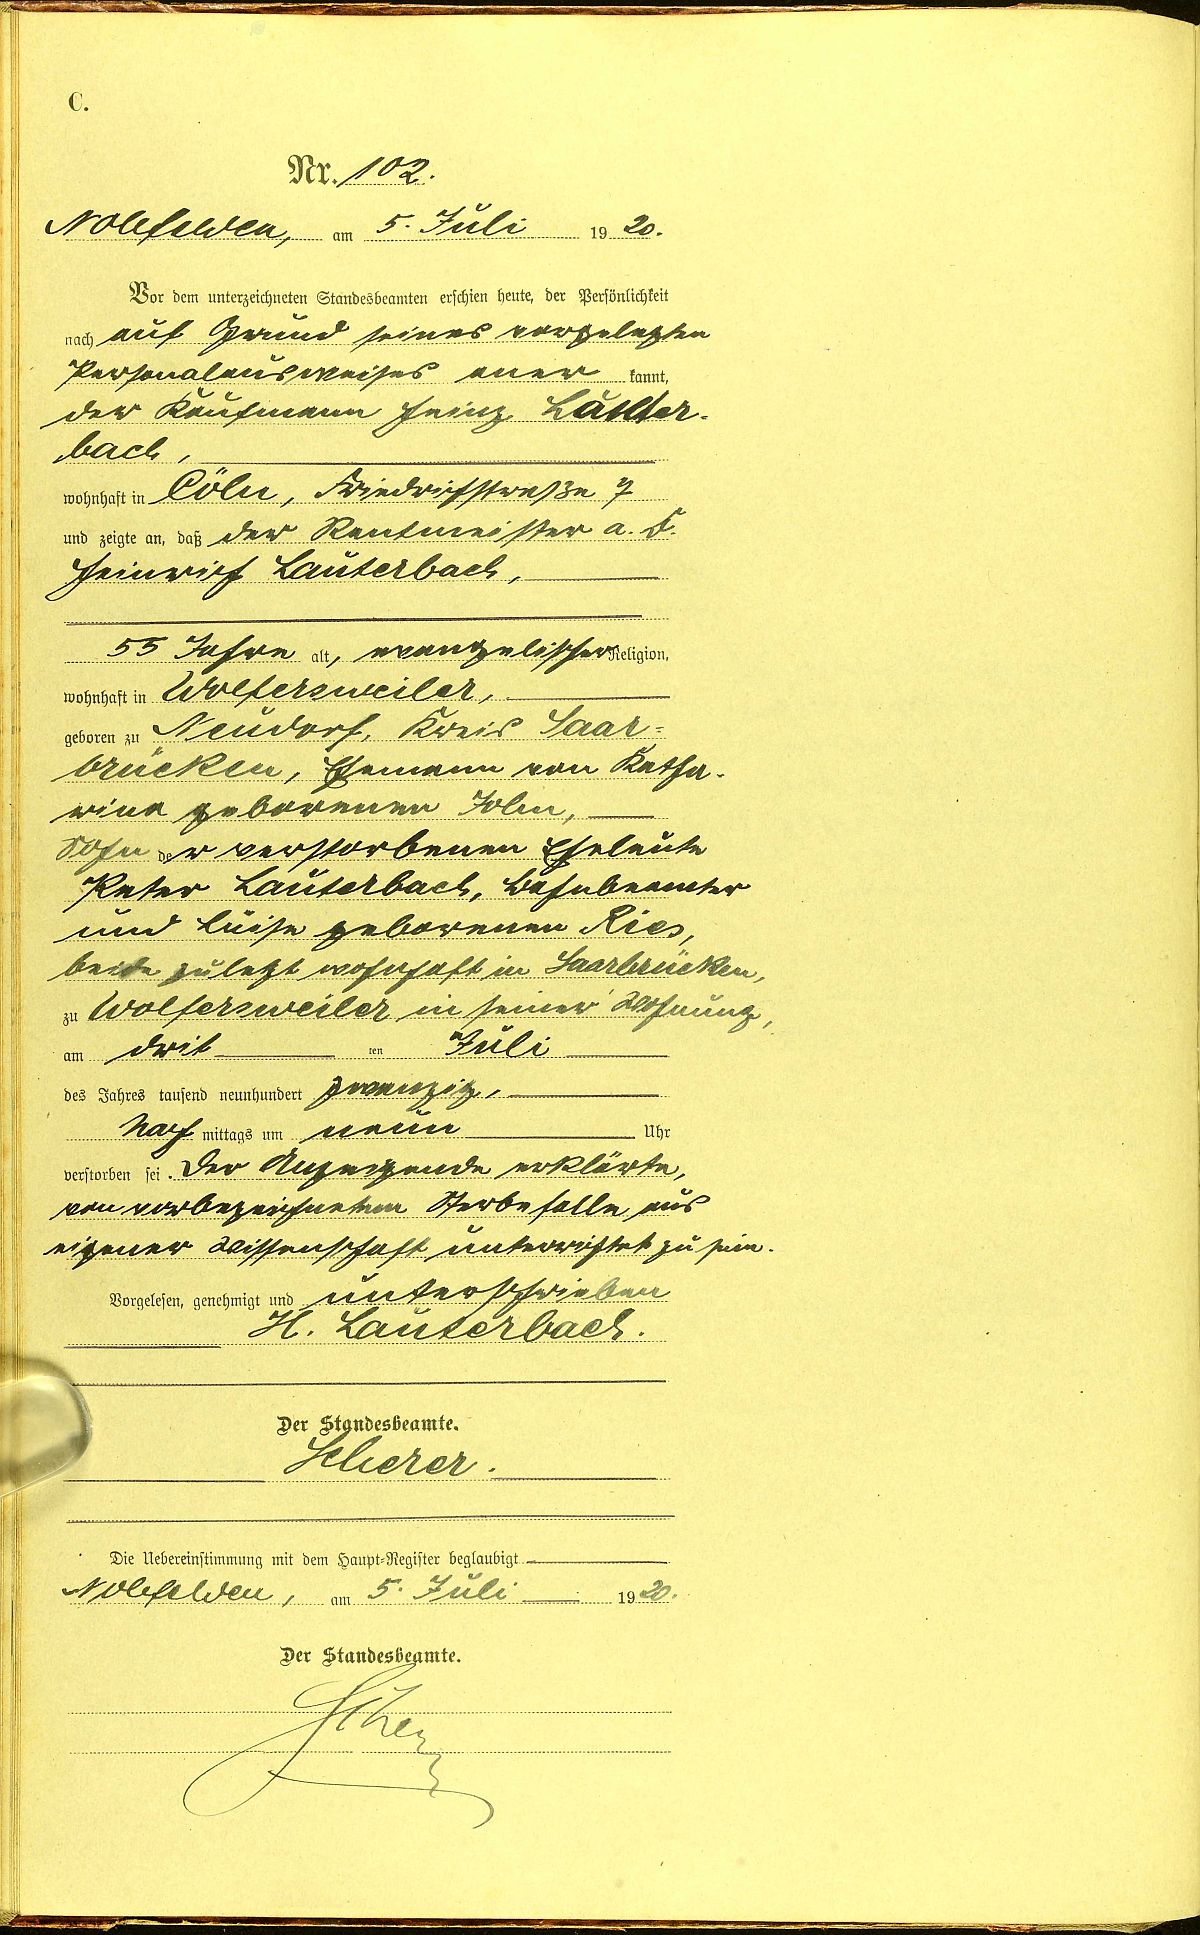 C.
Nr. 102.
Nohfelden, am 5. Juli 1920.
Vor dem unterzeichneten Standesbeamten erschien heute, der Persönlichkeit
nach auf Grund seines vorgelegten
Personalausweises aner kannt,
der Kaufmann Heinz Lauter-
bach,
wohnhaft in Cöln, Friedrichstraße 7
und zeigte an, daß der Rentmeister a. D.
Heinrich Lauterbach,
55 Jahre alt, evangelischer Religion,
wohnhaft in Wolfersweiler,
geboren zu Neudorf, Kreis Saar-
brücken, Ehemann von Katha-
rina geborenen
Sohn der verstorbenen Eheleute
Peter Lauterbach, Bahnbeamter
und Luise geborenen Ries,
beide zuletzt wohnhaft in Saarbrücken,
zu Wolfersweiler in seiner Wohnung,
am dritten Juli
des Jahres tausend neunhundert zwanzig,
Nach mittags um neun Uhr
verstorben sei. Der Anzeigende erklärte,
von vorbezeichnetem Sterbefalle aus
eigener Wissenschaft unterrichtet zu sein.
Vorgelesen, genehmigt und unterschrieben
H. Lauterbach.
Der Standesbeamte.
Scherer.
Die Uebereinstimmung mit dem Haupt-Register beglaubigt
Nohfelden, am 5. Juli 1920.
Der Standesbeamte.
Scherer